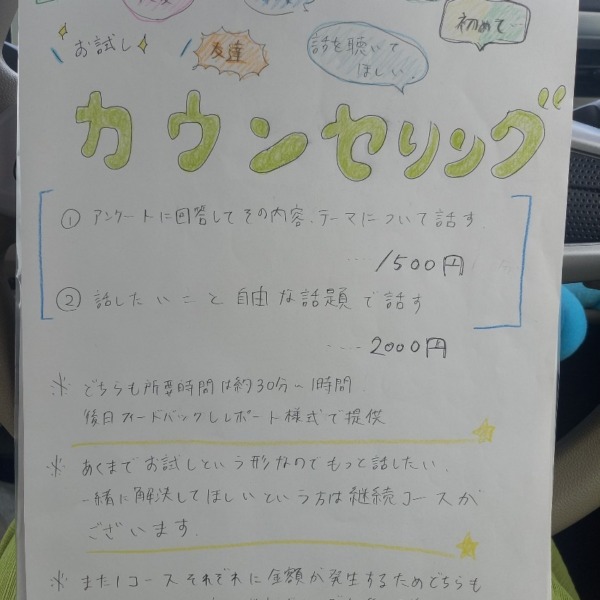 初めて…
お試し
友達
話を聴いて
ほしい.
カウンセリング
① アンケートに回答してその内容、テーマについて話す
‥‥ 1500円
② 話したいこと自由な話題で話す
‥‥ 2000円
※ どちらも所要時間は約30分〜1時間
後日フィードバックしレポート様式で提供
※ あくまでお試しという形なのでもっと話したい、
一緒に解決してほしいという方は継続コースが
ございます.
※ また1コースそれぞれに金額が発生するためどちらも